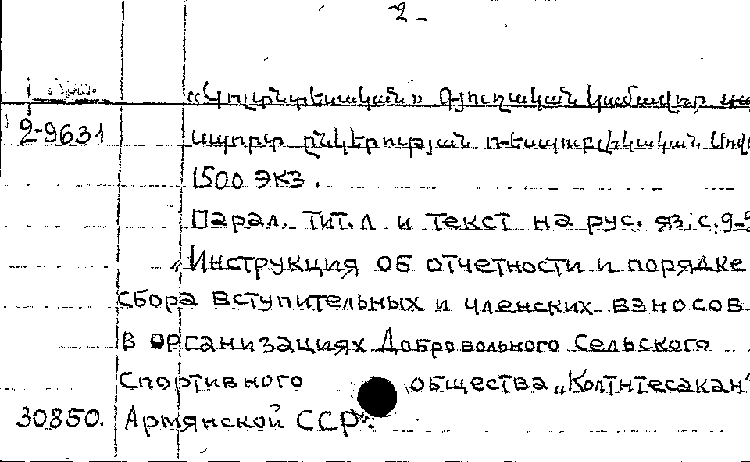 2 -
«Կոլտնտեսական» Գյուղական կամավոր
2-9631 սպորտ ընկերության ռեսպուբլիկական
1500 экз.
Парал. тит. л и текст на рус. яз, с. 9-
„Инструкция об отчетности и порядке
сбора вступительных и членских взносов
в организациях Добровольного Сельского
Спортивного общества „Колтнтесакан"
30850. Армянской ССР".